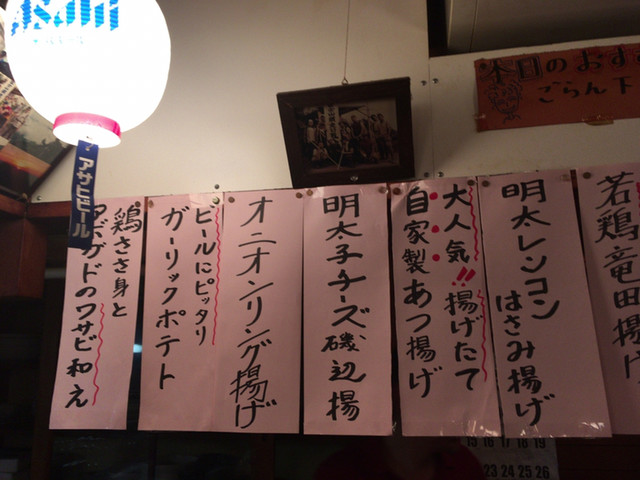 Asahi
アサヒビール
本日のおすす
ごらん下
若鶏竜田揚げ
明太レンコン
はさみ揚げ
大人気!!揚げたて
自家製あつ揚げ
明太子チーズ磯辺揚
オニオンリング揚げ
ビールにピッタリ
ガーリックポテト
鶏ささ身と
アボガドのワサビ和え
15 16 17 18 19
23 24 25 26